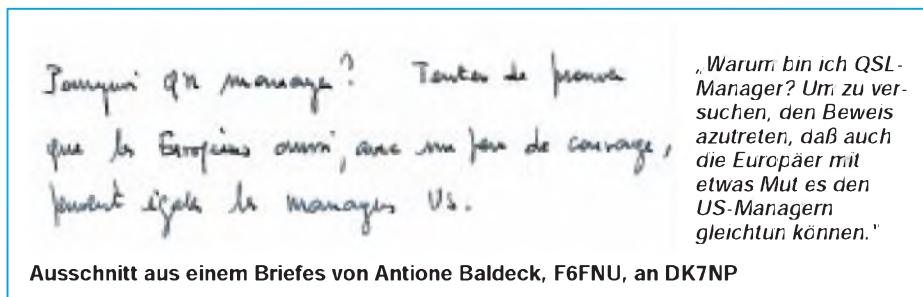 Pourquoi QSL manager? Tenter de prouver
que les Européens aussi, avec un peu de courage,
peuvent égaler les managers US.
„Warum bin ich QSL-
Manager? Um zu ver-
suchen, den Beweis
azutreten, daß auch
die Europäer mit
etwas Mut es den
US-Managern
gleichtun können."
Ausschnitt aus einem Briefes von Antione Baldeck, F6FNU, an DK7NP